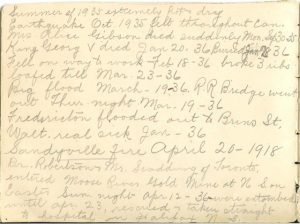 Summer of 1935 extremely hot & dry
Earthquake Oct 1935 felt throughout can.
Mrs Alice Gibson died suddenly Mon. Sep 30-35
King Georg V died Jan 20-36 Buried Jan 28 36
Fell on way to work Feb 18-36 broke 3 ribs
loafed till Mar. 23-36
Big flood March. 19-36. R.R Bridge went
out Thur. night Mar. 19-36
Fredericton flooded out to Bruns St.
Walt. real sick Jan - 36
Sandyville fire April 20-1918
Dr. Robertson & Mr. Scadding of Toronto,
entered Moose River Gold Mine at N Son
Easter Sun. night Apr. 12-36 were entombed
until Apr. 23, when taken straight
to hospital in Halifax